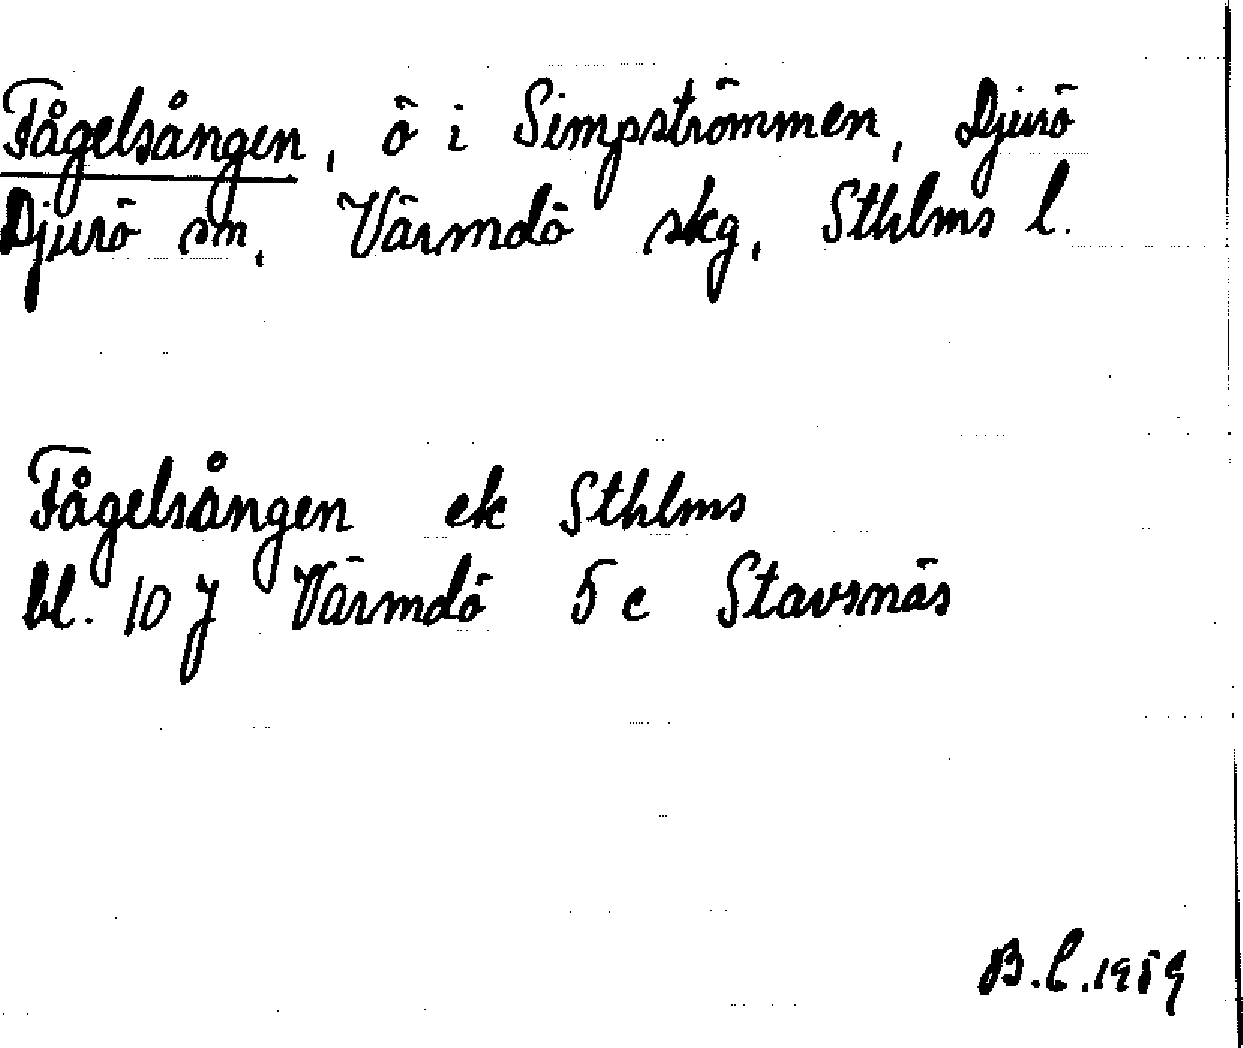 Fågelsången, ö i Simpströmmen, Djurö
Djurö sn, Värmdö skg, Sthlms l.
Fågelsången ek Sthlms
bl. 10 J Värmdö 5 c Stavsnäs
B.C. 1959